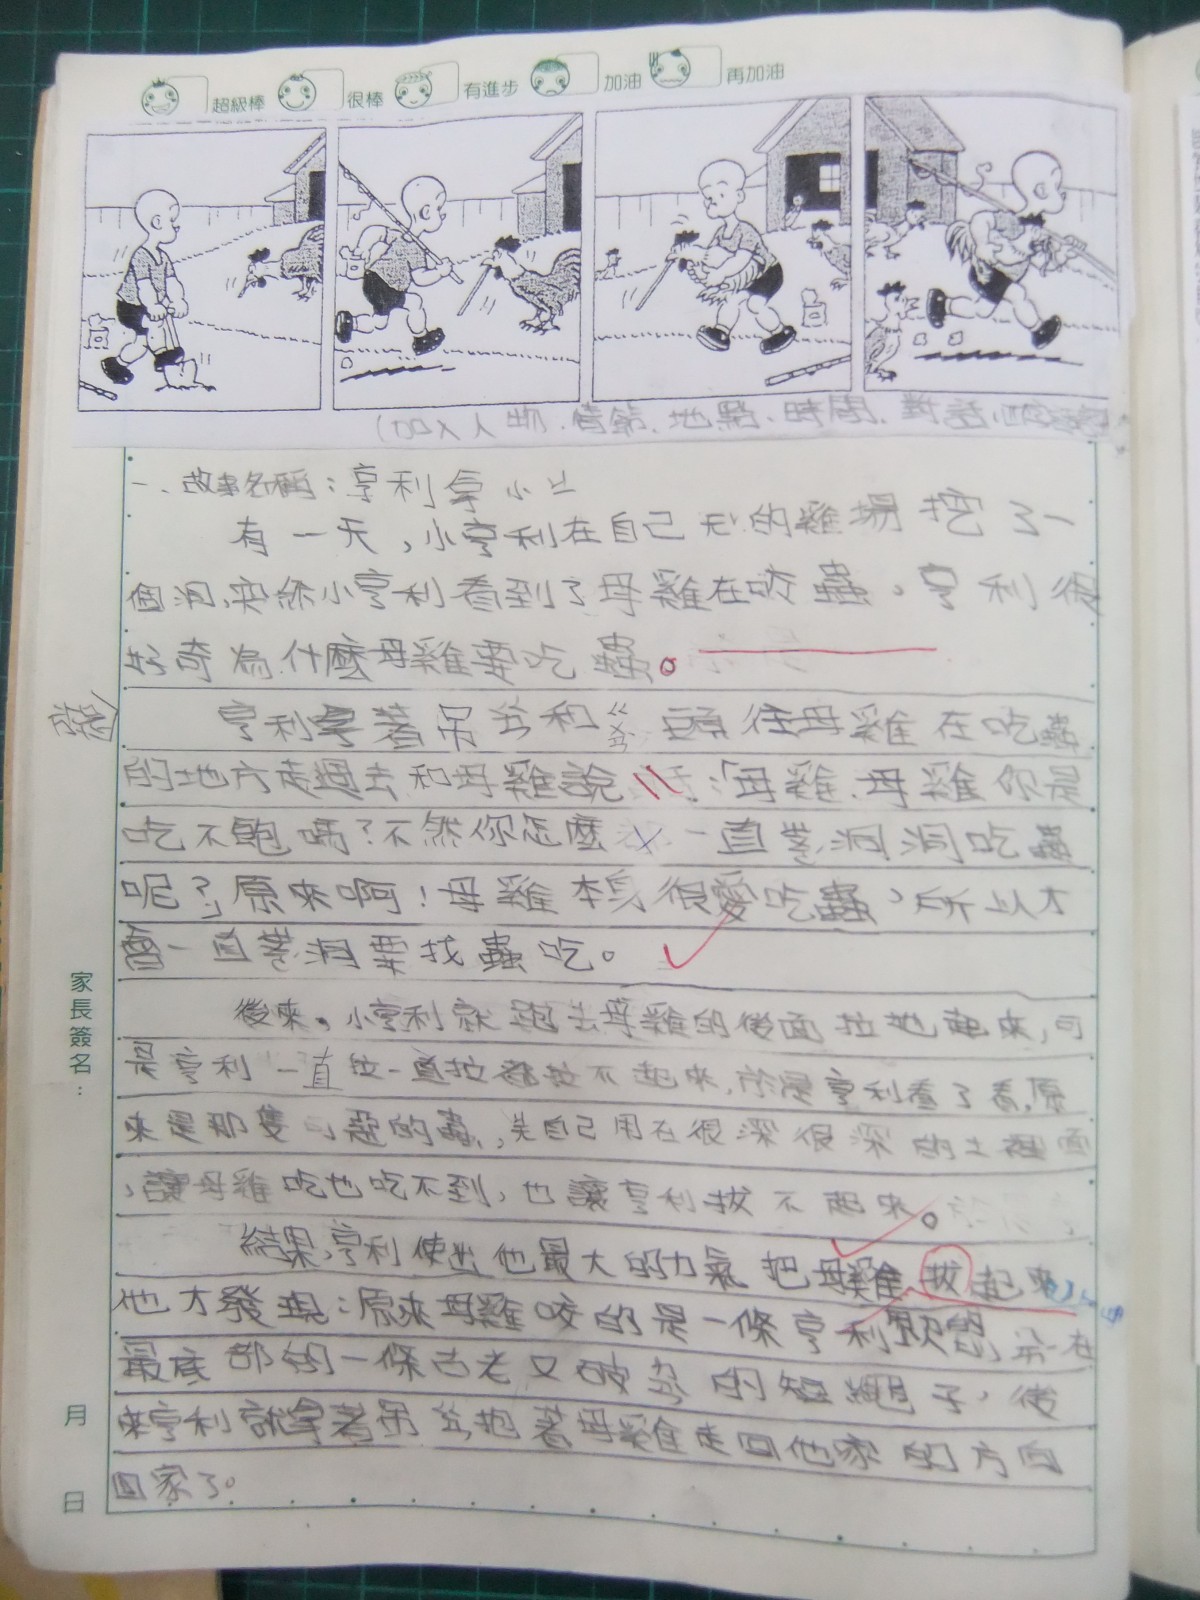 超級棒 很棒 有進步 加油 再加油
(加入人物、情節、地點、時間、對話
一、故事名稱：亨利拿小
有一天，小亨利在自己的雞場挖了一
個洞,突然小亨利看到了母雞在咬蟲，亨利很
好奇為什麼母雞要吃蟲。
亨利拿著吊竿和ㄍㄡ頭往母雞在吃蟲
的地方走過去和母雞說：「母雞、母雞你是
吃不飽嗎？不然你怎麼一直洞洞吃蟲
呢？」原來啊！母雞本身很愛吃蟲，所以才
會一直洞要找蟲吃。
後來。小亨利就跑去母雞的後面拉他起來，可
是亨利一直拉一直拉都拉不起來,於是亨利看了看,原
來是那隻可惡的蟲,自己用在很深很深的土裡面
，讓母雞吃也吃不到，也讓亨利拔不起來。
結果,亨利使出他最大的力氣把母雞拔起來
他才發現：原來母雞咬的是一條亨利在
最底部的一條古老又破的短繩子，後
來亨利就拿著吊竿抱著母雞走回他家的方向
回家了。
家長簽名：
月
日